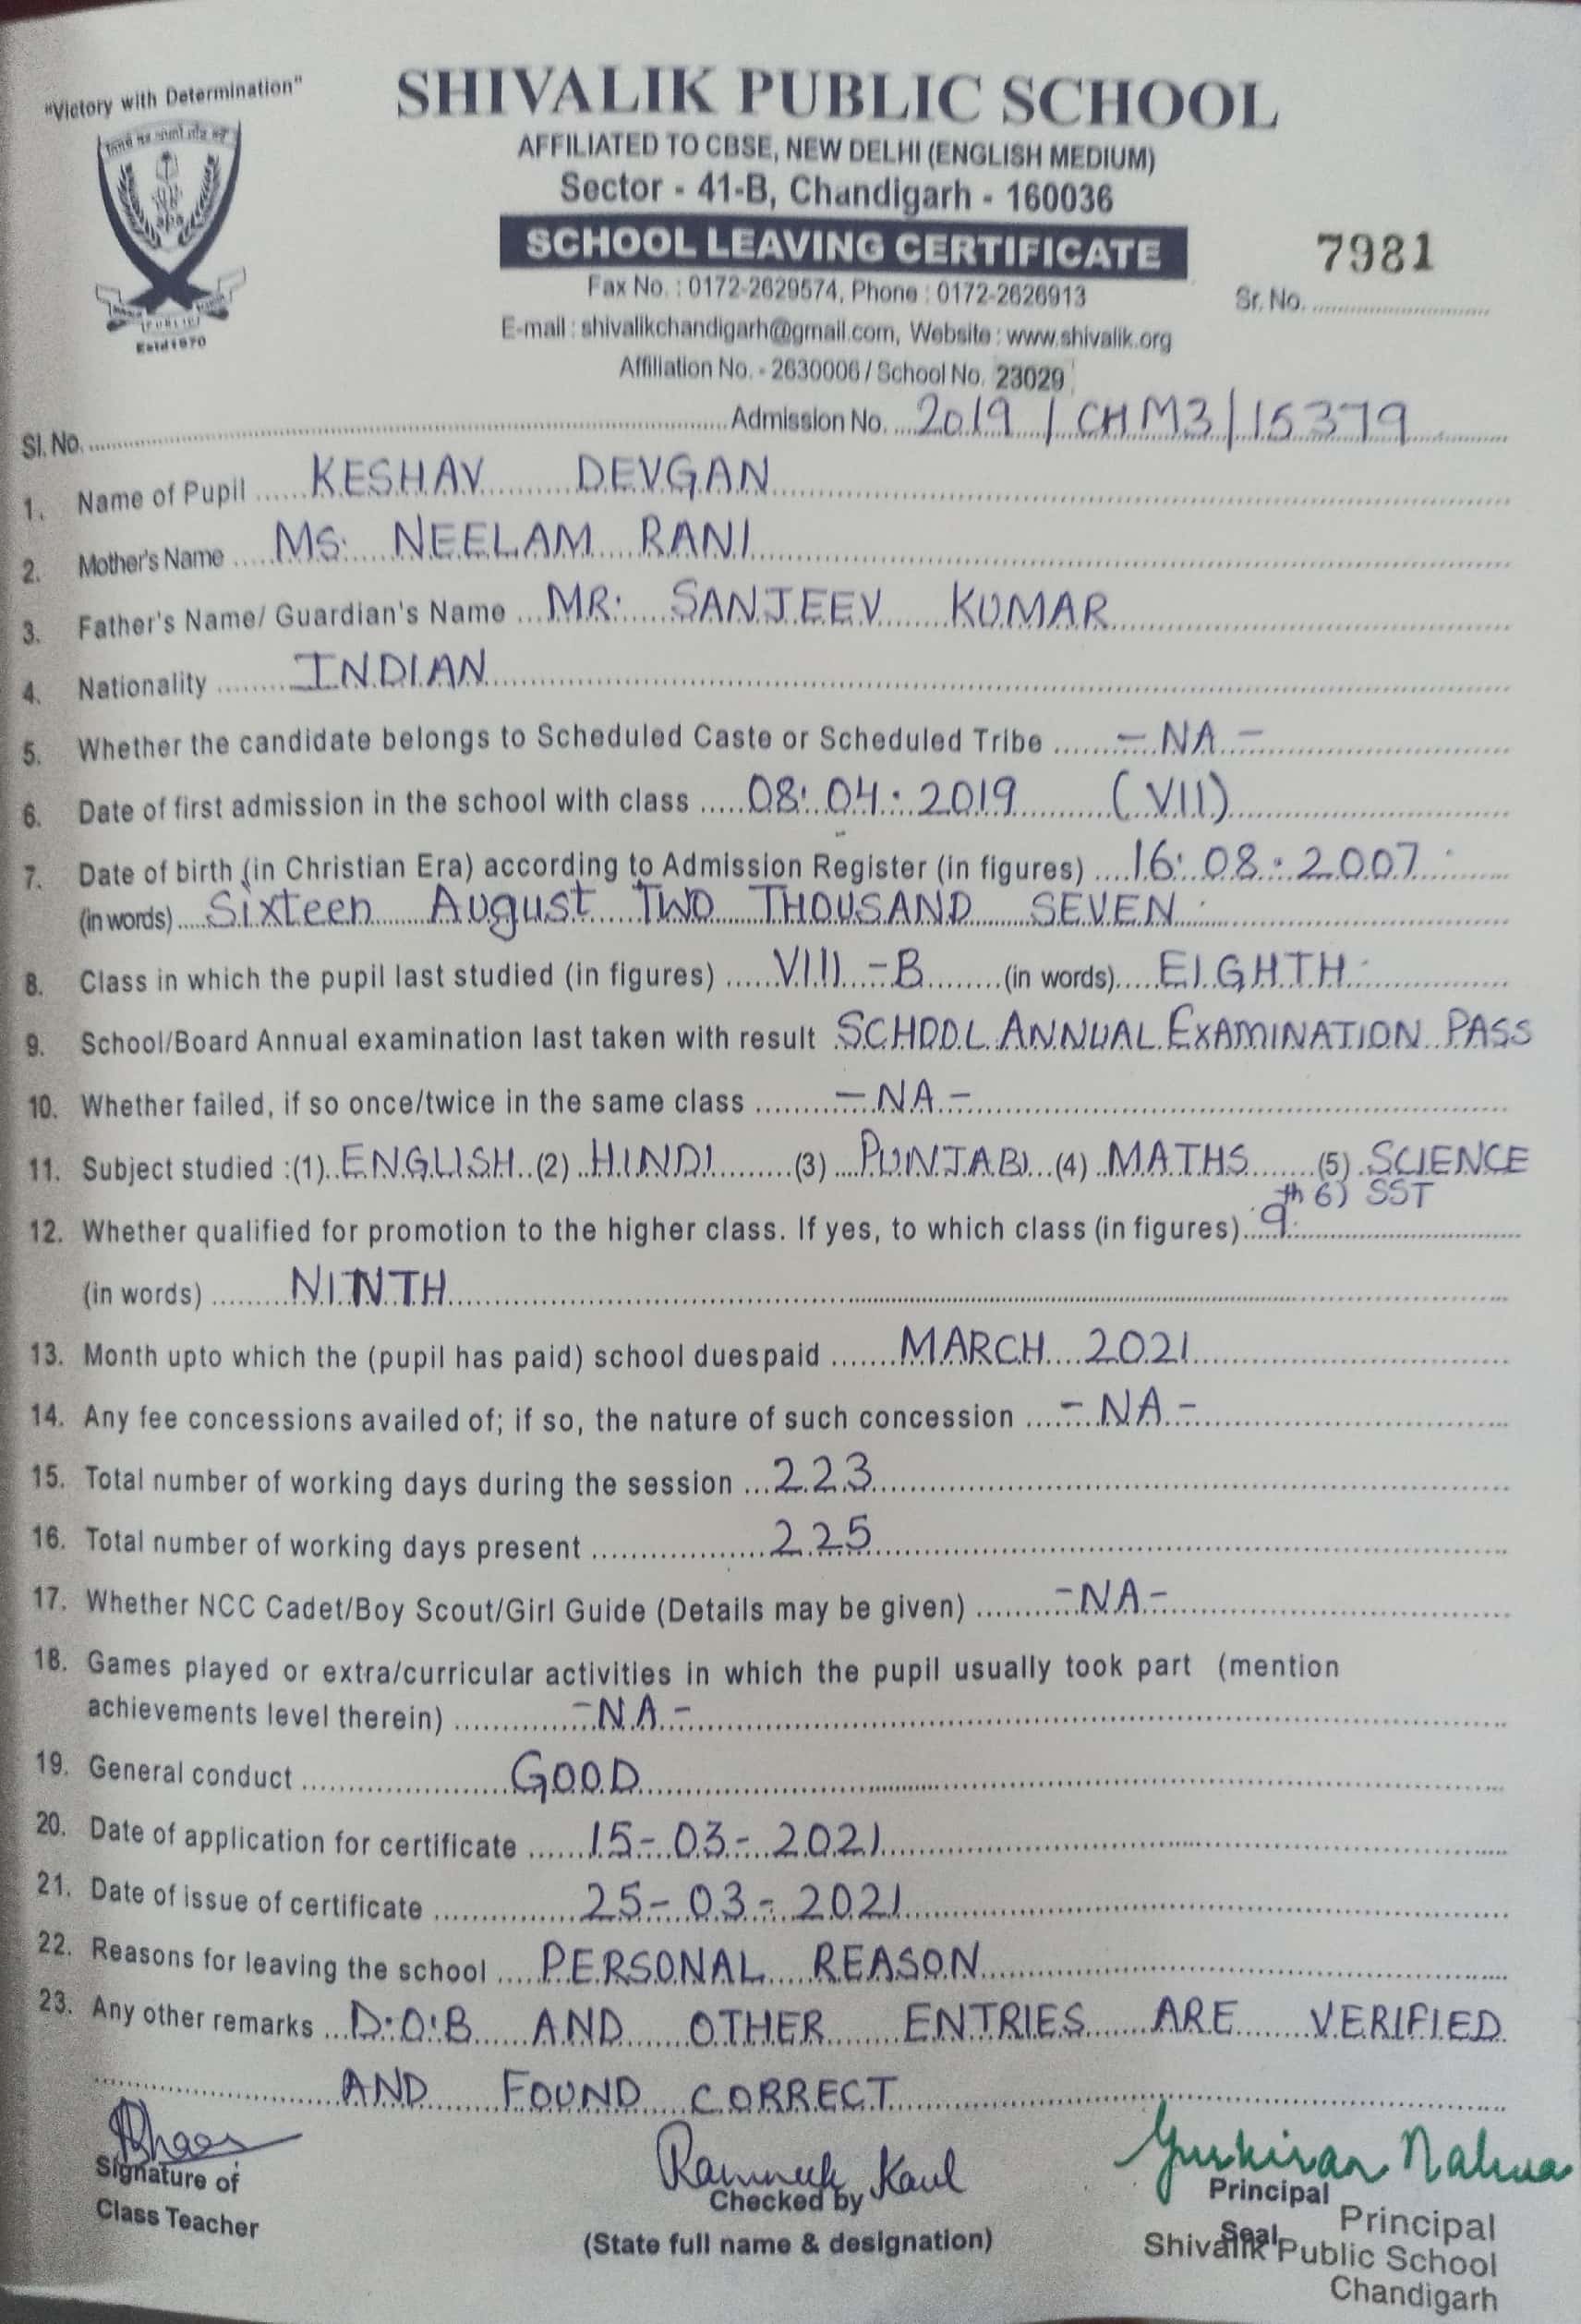 "Victory with Determination"
SHIVALIK PUBLIC SCHOOL
AFFILIATED TO CBSE, NEW DELHI (ENGLISH MEDIUM)
Sector - 41-B, Chandigarh - 160036
SCHOOL LEAVING CERTIFICATE
7981
Fax No. : 0172-2629574, Phone : 0172-2626913
Sr. No. ........
E-mail : shivalikchandigarh@gmail.com, Website : www.shivalik.org
PUBLIC
Estd 1970
Affiliation No. - 2630006 / School No. 23029
Sl. No. ........ Admission No. 2019 / CHM3/15379
1. Name of Pupil KESHAV DEVGAN
2. Mother's Name MS. NEELAM RANI
3. Father's Name/ Guardian's Name MR. SANJEEV KUMAR
4. Nationality INDIAN
5. Whether the candidate belongs to Scheduled Caste or Scheduled Tribe - NA -
6. Date of first admission in the school with class 08. 04. 2019 (VII)
7. Date of birth (in Christian Era) according to Admission Register (in figures) 16. 08. 2007
(in words) Sixteen August TWO THOUSAND SEVEN
8. Class in which the pupil last studied (in figures) VIII - B (in words) EIGHTH
9. School/Board Annual examination last taken with result SCHOOL ANNUAL EXAMINATION PASS
10. Whether failed, if so once/twice in the same class - NA -
11. Subject studied :(1) ENGLISH (2) HINDI (3) PUNJABI (4) MATHS (5) SCIENCE
6) SST
12. Whether qualified for promotion to the higher class. If yes, to which class (in figures) 9th
(in words) NINTH
13. Month upto which the (pupil has paid) school duespaid MARCH 2021
14. Any fee concessions availed of; if so, the nature of such concession - NA -
15. Total number of working days during the session 223
16. Total number of working days present 225
17. Whether NCC Cadet/Boy Scout/Girl Guide (Details may be given) - NA -
18. Games played or extra/curricular activities in which the pupil usually took part (mention
achievements level therein) - NA -
19. General conduct GOOD
20. Date of application for certificate 15 - 03 - 2021
21. Date of issue of certificate 25 - 03 - 2021
22. Reasons for leaving the school PERSONAL REASON
23. Any other remarks D.O.B AND OTHER ENTRIES ARE VERIFIED
AND FOUND CORRECT
Ramneek Kaul
Gurkiran Nalwa
Signature of
Class Teacher
Checked by
(State full name & designation)
Principal
Seal
Principal
Shivalik Public School
Chandigarh